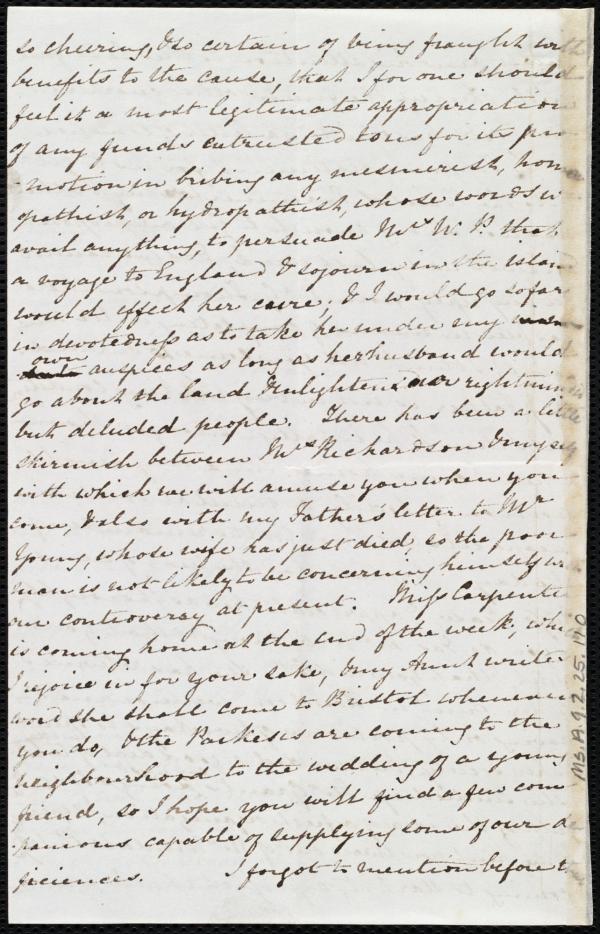 so cheering, & so certain of being fraught with
benefits to the cause, that I for one should
feel it a most legitimate appropriation
of any funds entrusted to us for its pro
-motion in bribing any mesmerist, homo
opathist, or hydropathist, whose words w
avail anything, to persuade Mrs W. P. that
a voyage to England & sojourn in the island
would effect her cure; & I would go so far
in devotedness as to take her under my
own auspices as long as her husband would
go about the land & enlighten our rightminded
but deluded people. There has been a little
skirmish between Mrs Richardson & myself
with which we will amuse you when you
come, & also with my Father's letter to Mr
Young, whose wife has just died, so the poor
man is not likely to be concerning himself w
our controversy at present. Miss Carpente
is coming home at the end of the week, whi
I rejoice in for your sake, & my Aunt writes
word she shall come to Bristol whenever
you do, & the Parkeses are coming to the
neighbourhood to the wedding of a young
friend, so I hope you will find a few com
-panions capable of supplying some of our de
ficiences. I forgot to mention before
Ms.A.9.2.25.110